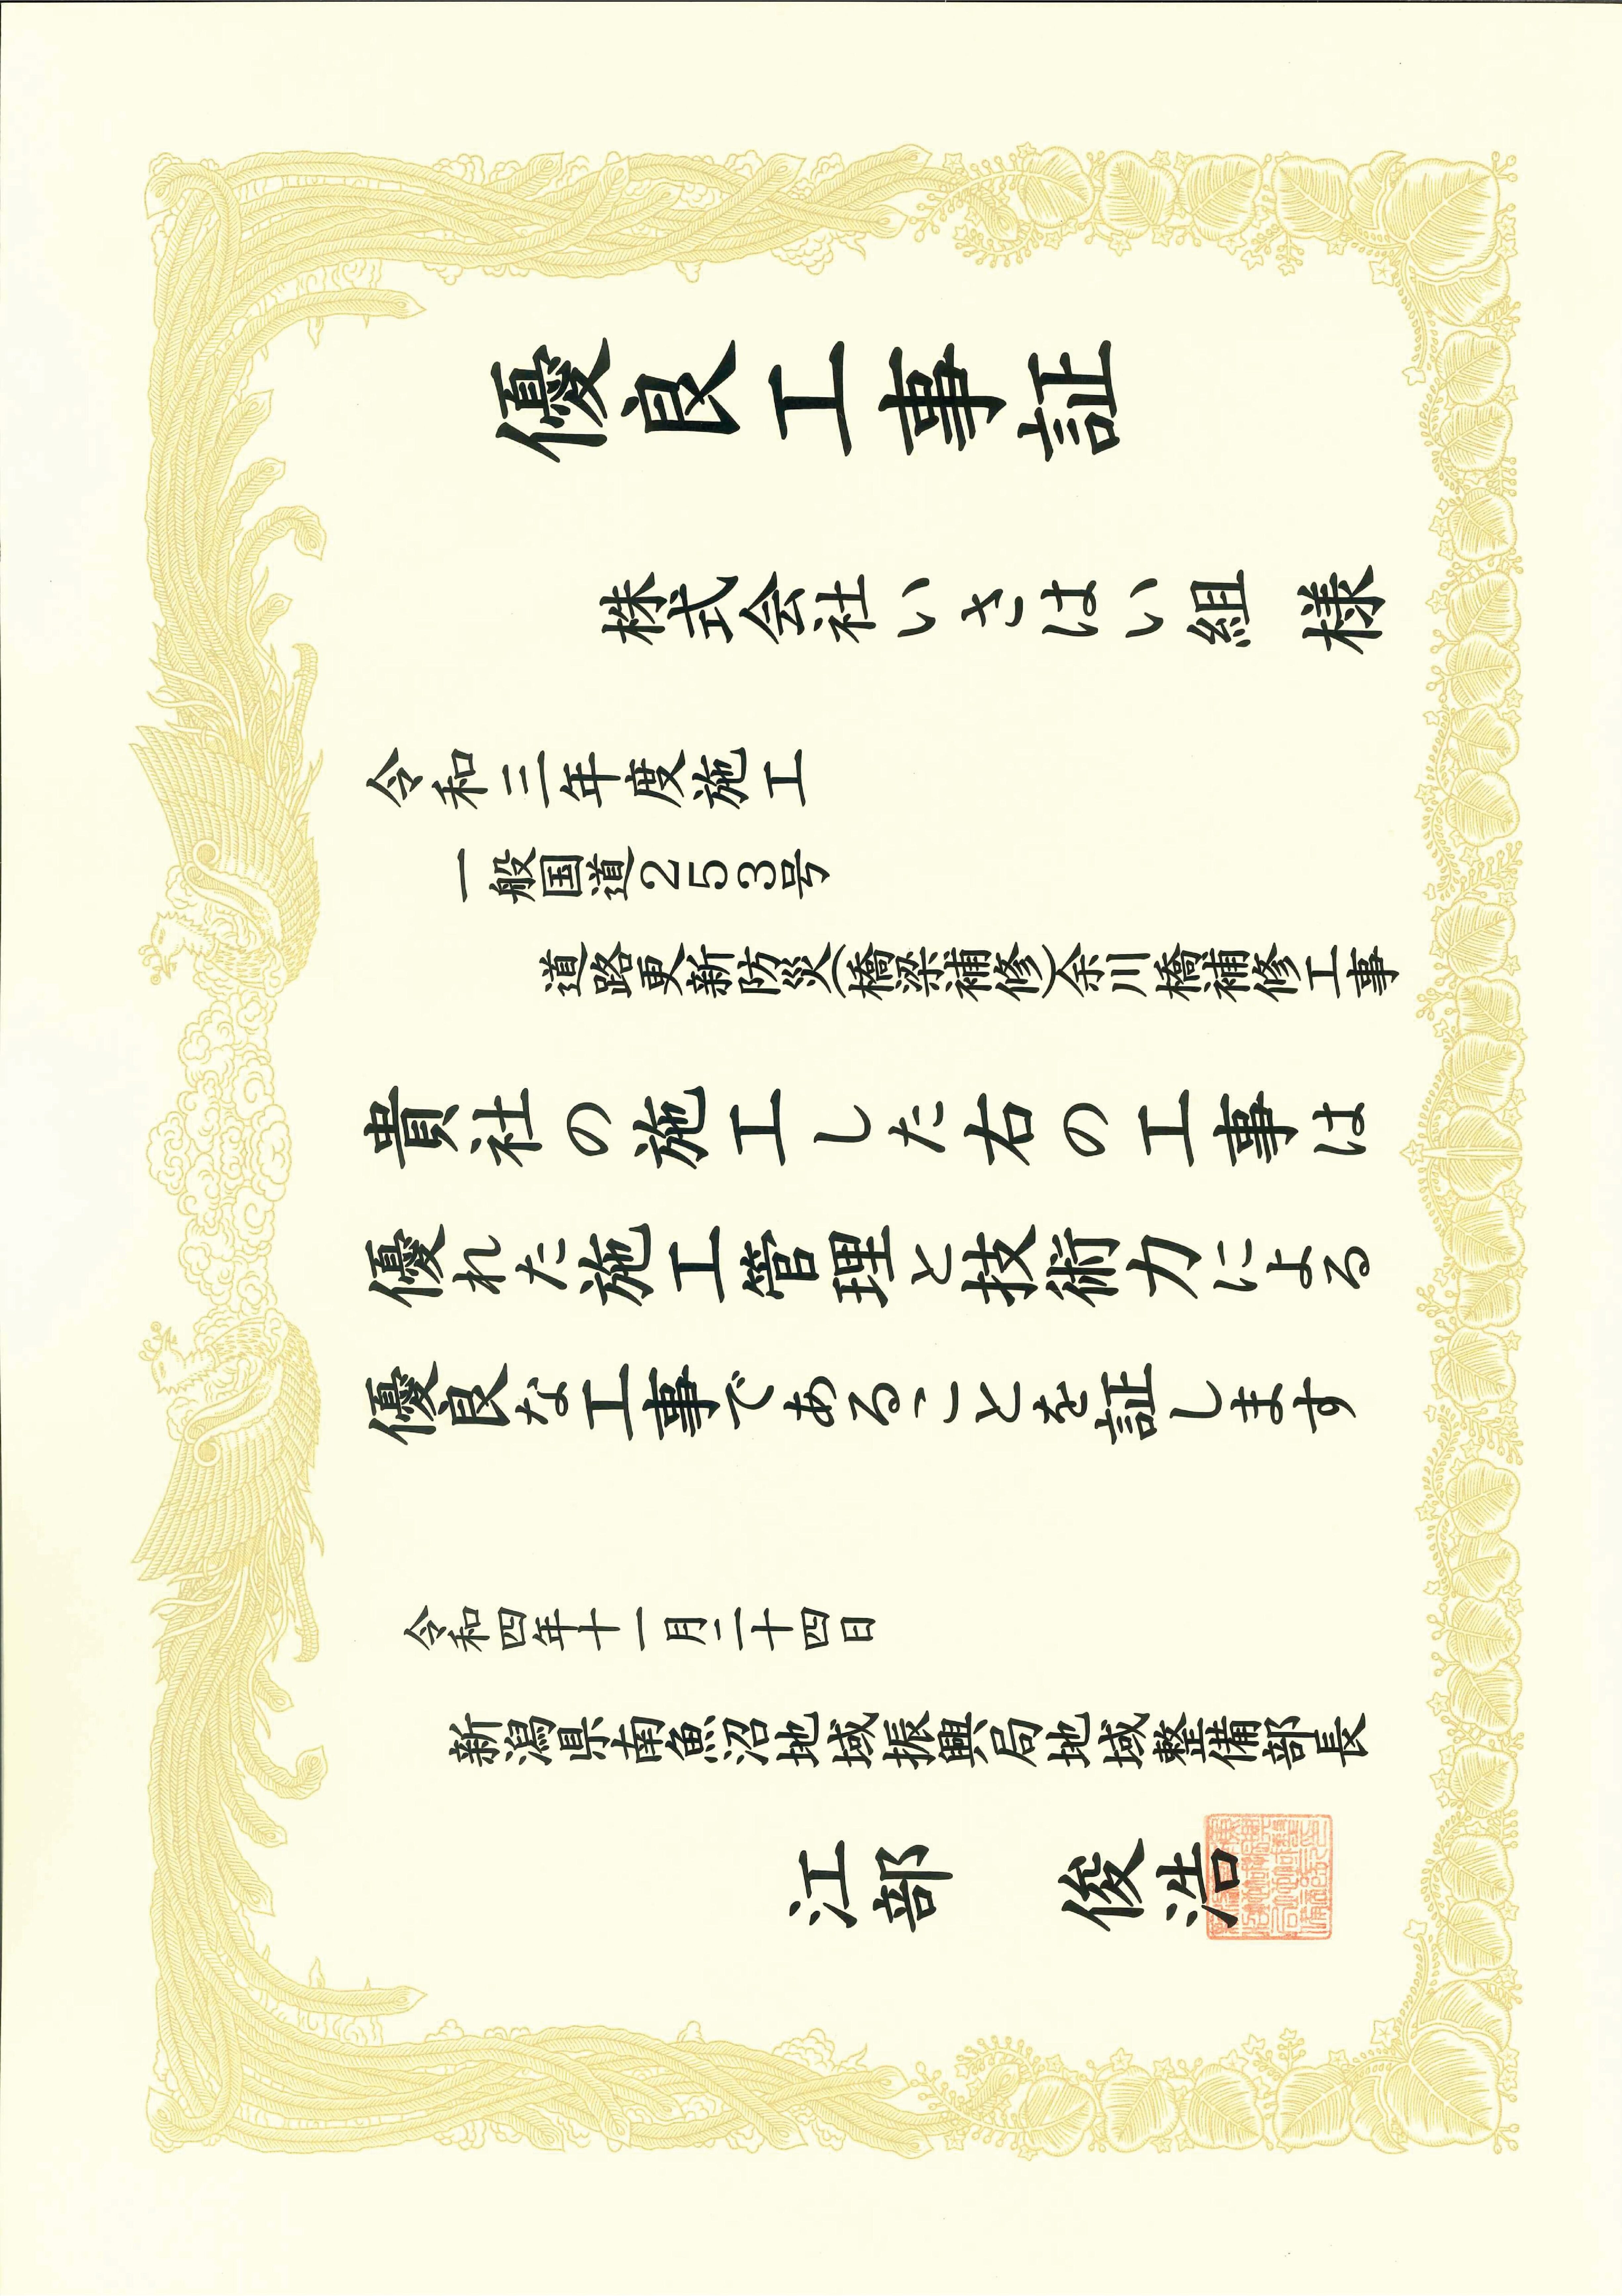 優良工事証
株式会社いさはい組 様
令和三年度施工
一般国道253号
道路更新防災(橋梁補修)余川橋補修工事
貴社の施工した右の工事は
優れた施工管理と技術力による
優良な工事であることを証します
令和四年十一月二十四日
新潟県南魚沼地域振興局地域整備部長
江部 俊浩